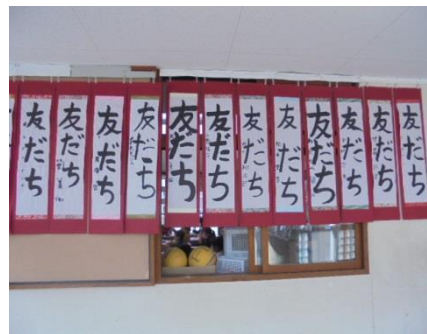 友だち
友だち
友だち
友だち
友だち
友だち
友だち
友だち
友だち
友だち
友だち
友だち